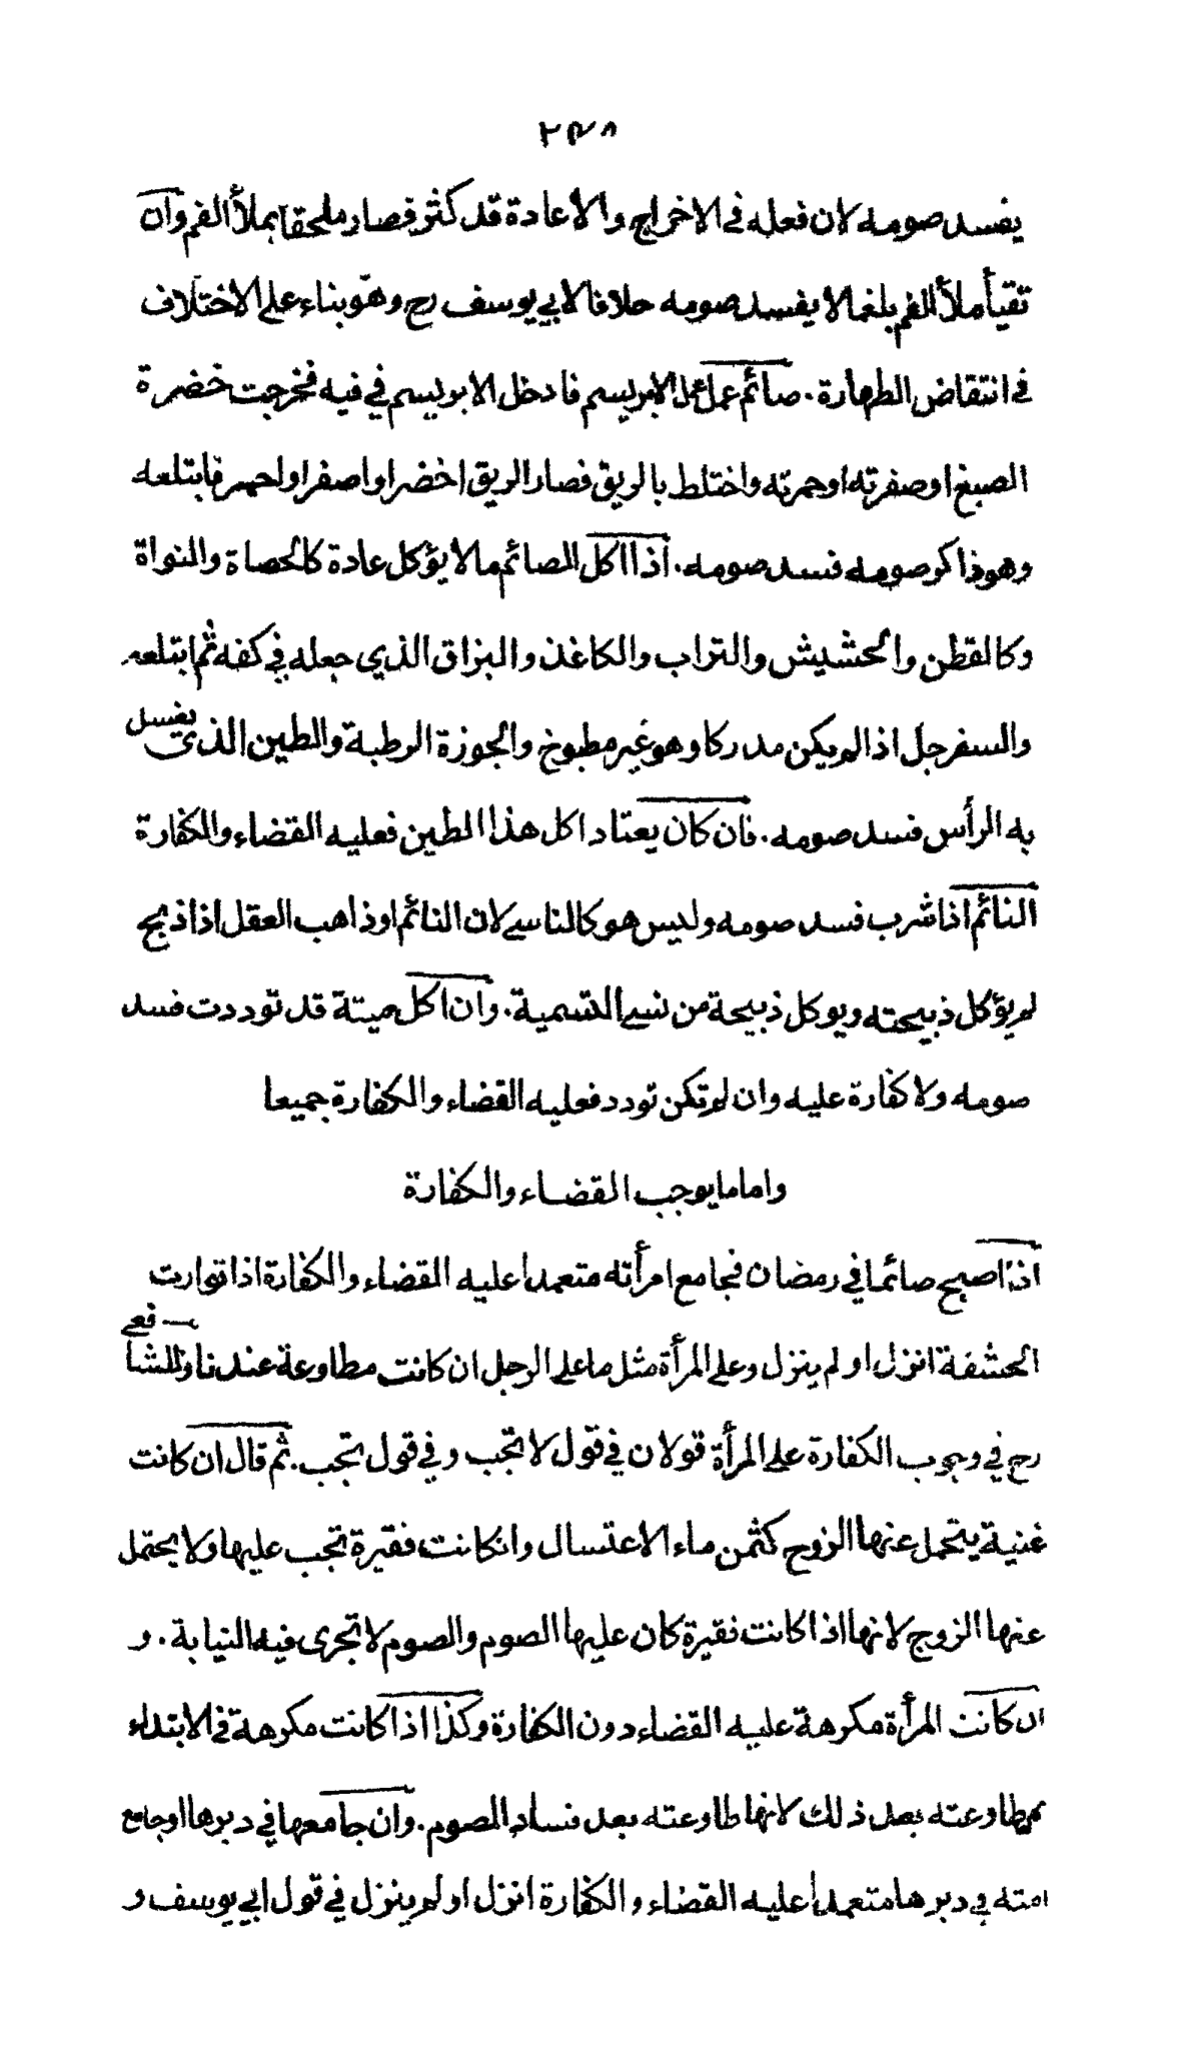 ٢٣٨
يفسد صومه لان فعله في الاخراج والاعادة قد كثر فصار ملحقا بملأ الفم وان
تقيأ ملأ الفم بلغما لا يفسد صومه خلافا لابي يوسف رح وهو بناء على الاختلاف
في انتقاض الطهارة. صائم عمل عمل الابريسم فادخل الابريسم في فيه فخرجت خضرة
الصبغ او صفرته او حمرته واختلط بالريق فصار الريق اخضر او اصفر او احمر فابتلعه
وهو ذاكر صومه فسد صومه. اذا اكل الصائم ما لا يؤكل عادة كالحصاة والنواة
وكالقطن والحشيش والتراب والكاغذ والبزاق الذي جعله في كفه ثم ابتلعه
والسفرجل اذا لم يكن مدركا وهو غير مطبوخ والجوزة الرطبة والطين الذي يغسل
به الرأس فسد صومه. فان كان يعتاد اكل هذا الطين فعليه القضاء والكفارة
النائم اذا شرب فسد صومه وليس هو كالناسي لان النائم او ذاهب العقل اذا ذبح
لم يؤكل ذبيحته ويوكل ذبيحة من نسي التسمية. وان اكل ميتة قد توددت فسد
صومه ولا كفارة عليه وان لم تكن تودد فعليه القضاء والكفارة جميعا
واما ما يوجب القضاء والكفارة
اذا اصبح صائما في رمضان فجامع امرأته متعمدا عليه القضاء والكفارة اذا توارت
الحشفة انزل او لم ينزل وعلى المرأة مثل ما على الرجل ان كانت مطاوعة عندنا وللشافعي
رح في وجوب الكفارة على المرأة قولان في قول لا تجب وفي قول تجب. ثم قال ان كانت
غنية يتحمل عنها الزوج كثمن ماء الاغتسال وانكانت فقيرة تجب عليها ولا يحتمل
عنها الزوج لانها اذا كانت فقيرة كان عليها الصوم والصوم لا تجرى فيه النيابة. و
ان كانت المرأة مكرهة عليه القضاء دون الكفارة وكذا اذا كانت مكرهة في الابتداء
ثم طاوعته بعد ذلك لانها طاوعته بعد فساد الصوم. وان جامعها في دبرها او جامع
امته في دبرها متعمدا عليه القضاء والكفارة انزل او لم ينزل في قول ابي يوسف و